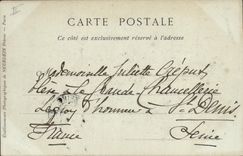 CARTE POSTALE
Ce côté est exclusivement réservé à l'adresse
Mademoiselle Juliette
Elève à la Grande Chancellerie
Légion d'honneur à St Denis
France Seine
Etablissements Photographiques de NEURDEIN Frères. - Paris